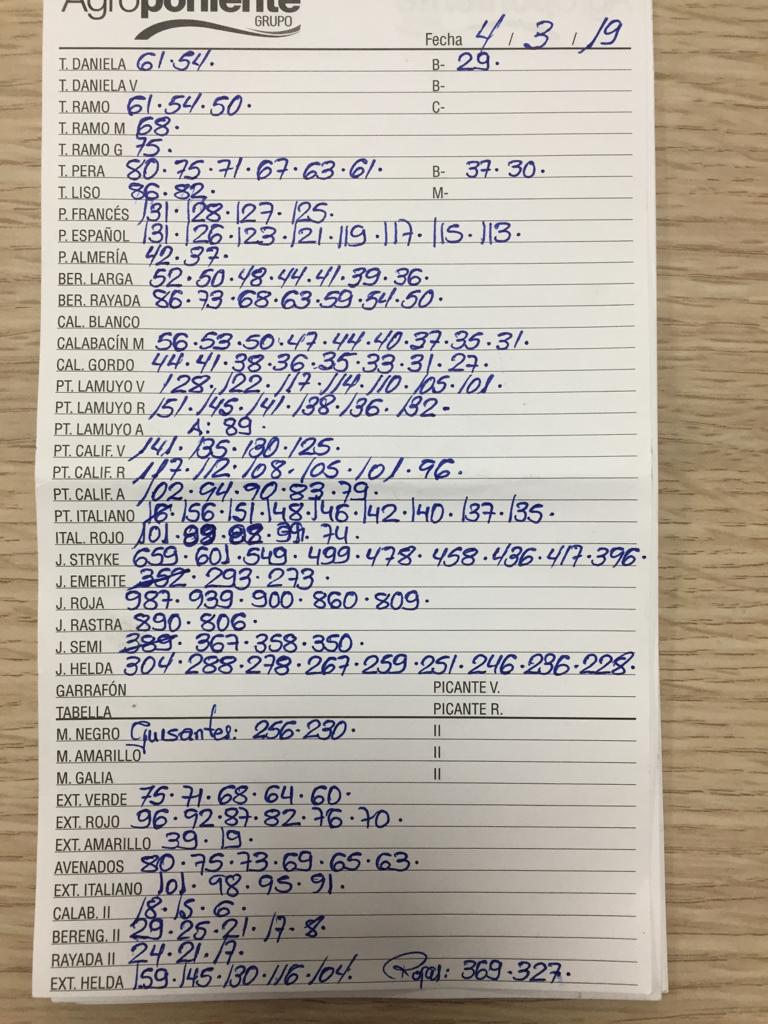 Agroponiente
GRUPO
Fecha 4 / 3 / 19
T. DANELA 61·54. B- 29·
T. DANIELA V B-
T. RAMO 61·54·50· C-
T. RAMO M 68·
T. RAMO G 75·
T. PERA 80·75·71·67·63·61· B- 37·30·
T. LISO 86·82· M-
P. FRANCÉS 131·128·127·125·
P. ESPAÑOL 131·126·123·121·119·117·115·113·
P. ALMERÍA 42·37·
BER. LARGA 52·50·48·44·41·39·36·
BER. RAYADA 86·73·68·63·59·54·50·
CAL. BLANCO
CALABACÍN M 56·53·50·47·44·40·37·35·31·
CAL. GORDO 44·41·38·36·35·33·31·27·
PT. LAMUYO V 128·122·117·114·110·105·101·
PT. LAMUYO R 151·145·141·138·136·132-
PT. LAMUYO A A: 89·
PT. CALIF. V 141·135·130·125·
PT. CALIF. R 117·112·108·105·101·96·
PT. CALIF. A 102·94·90·83·79·
PT. ITALIANO 156·151·148·146·142·140·137·135·
ITAL. ROJO 101· 74·
J. STRYKE 659·601·549·499·478·458·436·417·396·
J. EMERITE 352·293·273·
J. ROJA 987·939·900·860·809·
J. RASTRA 890·806·
J. SEMI 389·367·358·350·
J. HELDA 304·288·278·267·259·251·246·236·228·
GARRAFÓN PICANTE V.
TABELLA PICANTE R.
M. NEGRO Guisantes: 256·230· II
M. AMARILLO II
M. GALIA II
EXT. VERDE 75·71·68·64·60·
EXT. ROJO 96·92·87·82·76·70·
EXT. AMARILLO 39·19·
AVENADOS 80·75·73·69·65·63·
EXT. ITALIANO 101·98·95·91·
CALAB. II 18·15·6·
BERENG. II 29·25·21·17·8·
RAYADA II 24·21·17·
EXT. HELDA 159·145·130·116·104· Rojas: 369·327·